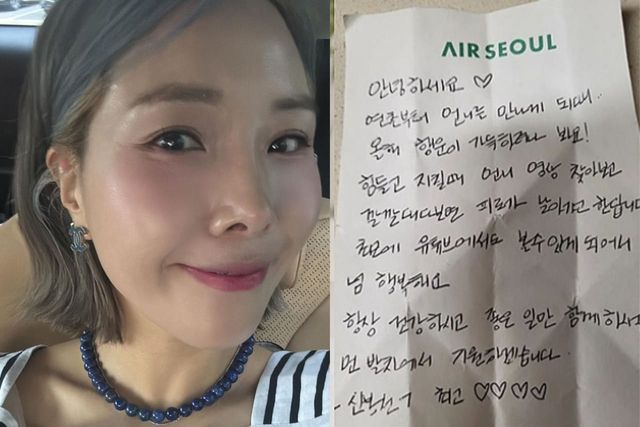 AIR SEOUL
안녕하세요 ♡
연초부터 언니를 만나게 되다니..
올해 행운이 가득하려나 봐요!
힘들고 지칠때 언니 영상 찾아보고
깔깔대다보면 피로가 날아가곤 한답니다
최근에 유튜브에서도 볼수 있게 되어서
넘 행복해요
항상 건강하시고 좋은 일만 함께 하셔
먼 발치에서 기원하겠습니다.
최고 ♡♡♡♡